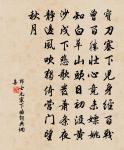 寶刀塞下兒身經百戰
曾百勝壯心竟未嫖姚
知白草山頭日初沒黃
沙戍下悲歌發蕭條夜
靜邊風吹獨倚營門望
秋月
郎士元塞下曲